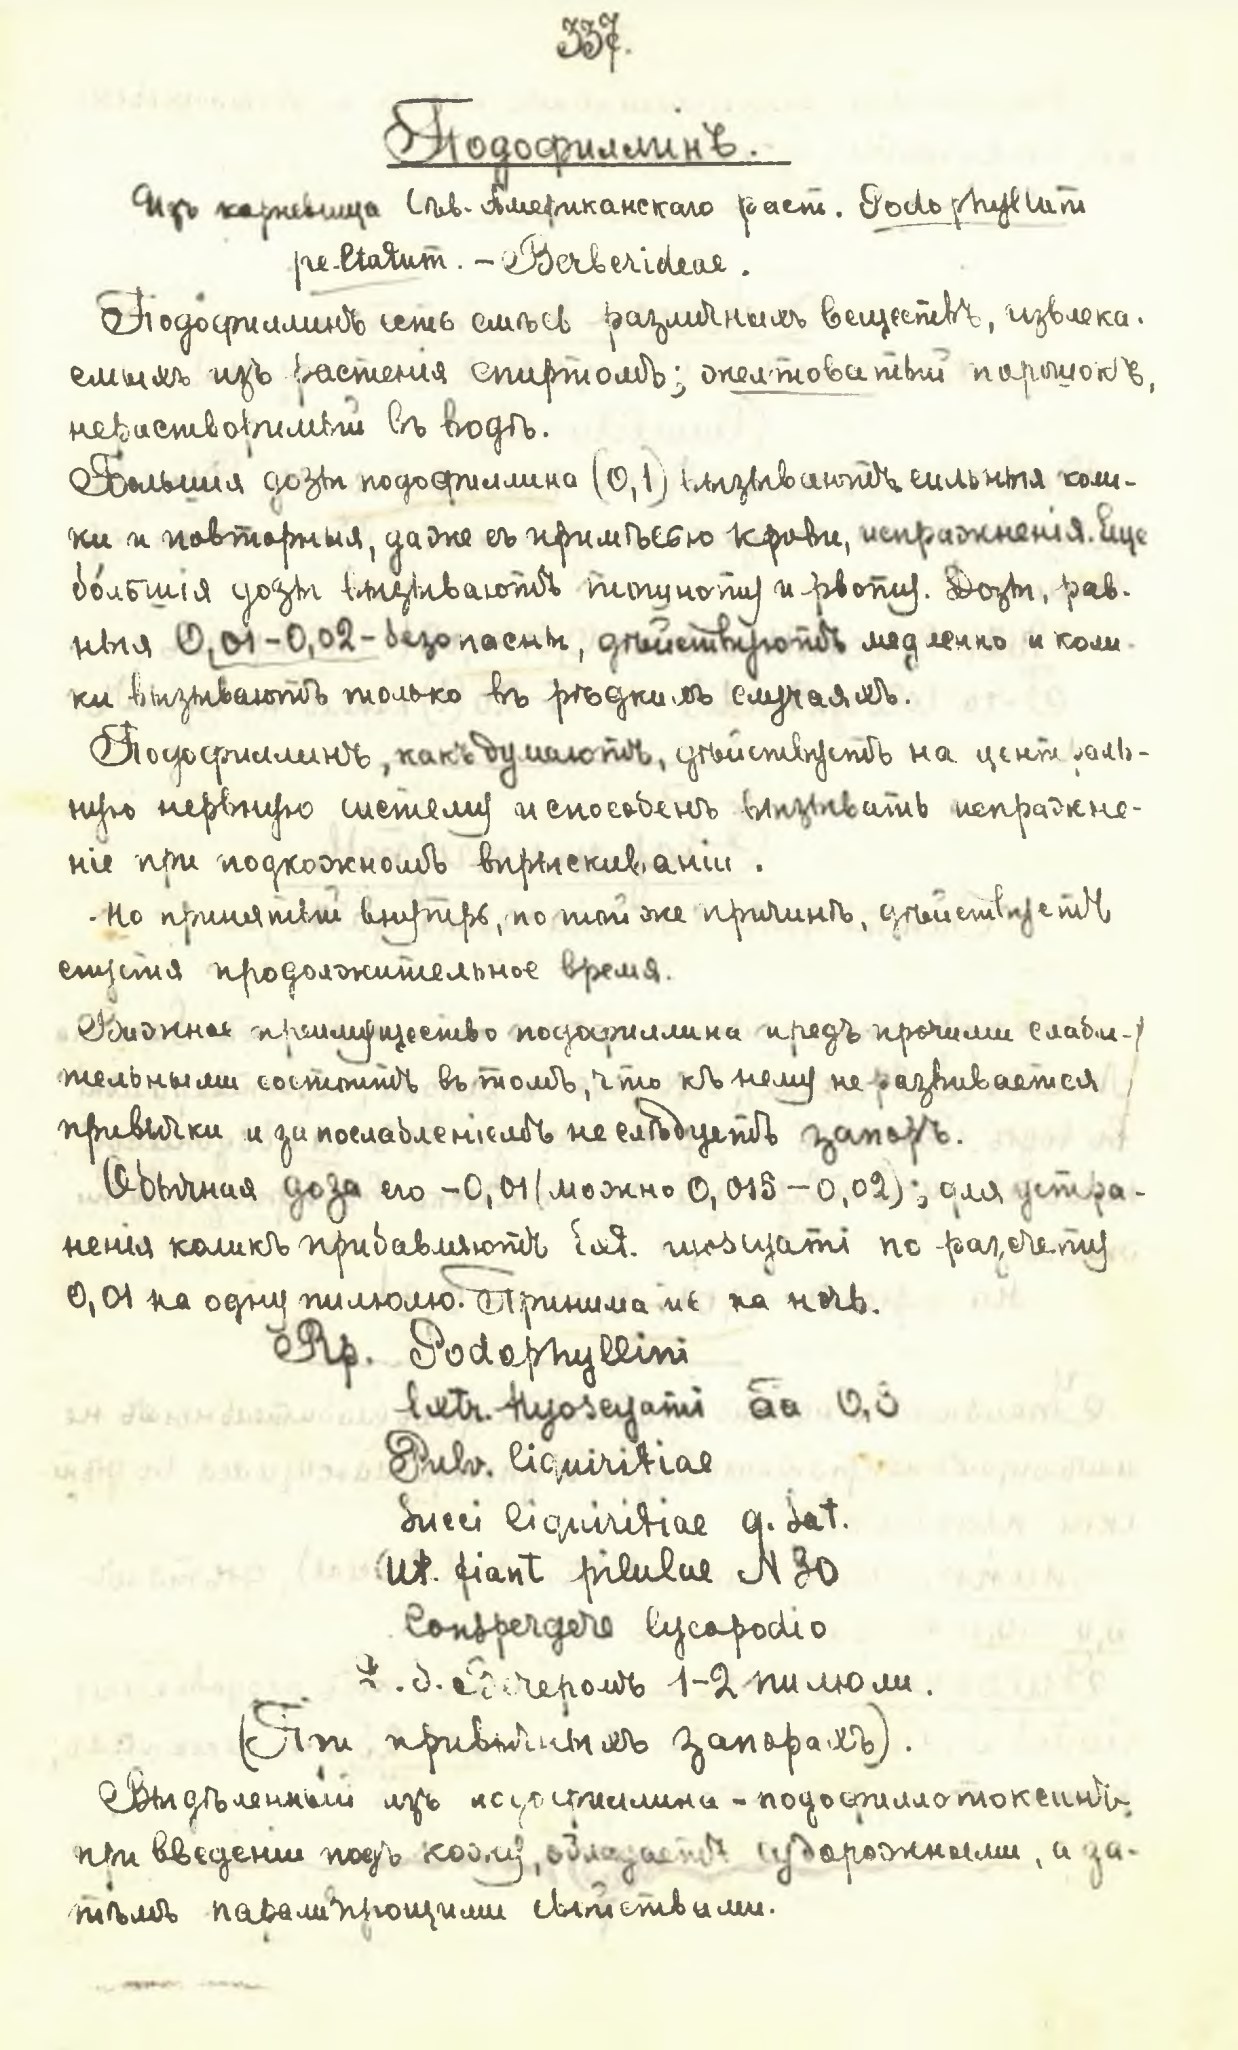 337.
Подофиллинъ.
Изъ корневища Сѣв.-Американскаго раст. Podophyllum
peltatum. – Berberideae.
Подофиллинъ есть смѣсь различныхъ веществъ, извлека-
емыхъ изъ растенія спиртомъ; желтоватый порошокъ,
нерастворимый въ водѣ.
Большія дозы подофиллина (0,1) вызываютъ сильныя коли-
ки и повторныя, даже съ примѣсью крови, испражненія. Еще
бо́льшія дозы вызываютъ тошноту и рвоту. Дозы, рав-
ныя 0,01–0,02 – безопасны, дѣйствуютъ медленно и коли-
ки вызываютъ только въ рѣдкихъ случаяхъ.
Подофиллинъ, какъ думаютъ, дѣйствуетъ на централь-
ную нервную систему и способенъ вызывать испражне-
ніе при подкожномъ впрыскиваніи.
Но принятый внутрь, по той же причинѣ, дѣйствуетъ
спустя продолжительное время.
Важное преимущество подофиллина предъ прочими слаби-
тельными состоитъ въ томъ, что къ нему не развивается
привычки и за послабленіемъ не слѣдуетъ запоръ.
Обычная доза его – 0,01 (можно 0,015 – 0,02); для устра-
ненія коликъ прибавляютъ Ext. hyoscyami по разсчету
0,01 на одну пилюлю. Принима на ночь.
Rp. Podophyllini
Extr. Hyoscyami āā 0,3
Pulv. liquiritiae
Succi liquiritiae q. sat.
Ut. fiant pilulae N 30
Conspergere lycopodio
Вечеромъ 1–2 пилюли.
(При привычныхъ запорахъ).
Выдѣленный изъ подофиллина – подофиллотоксинъ,
при введеніи подъ кожу, обладаетъ судорожными, а за-
тѣмъ парализующими свойствами.